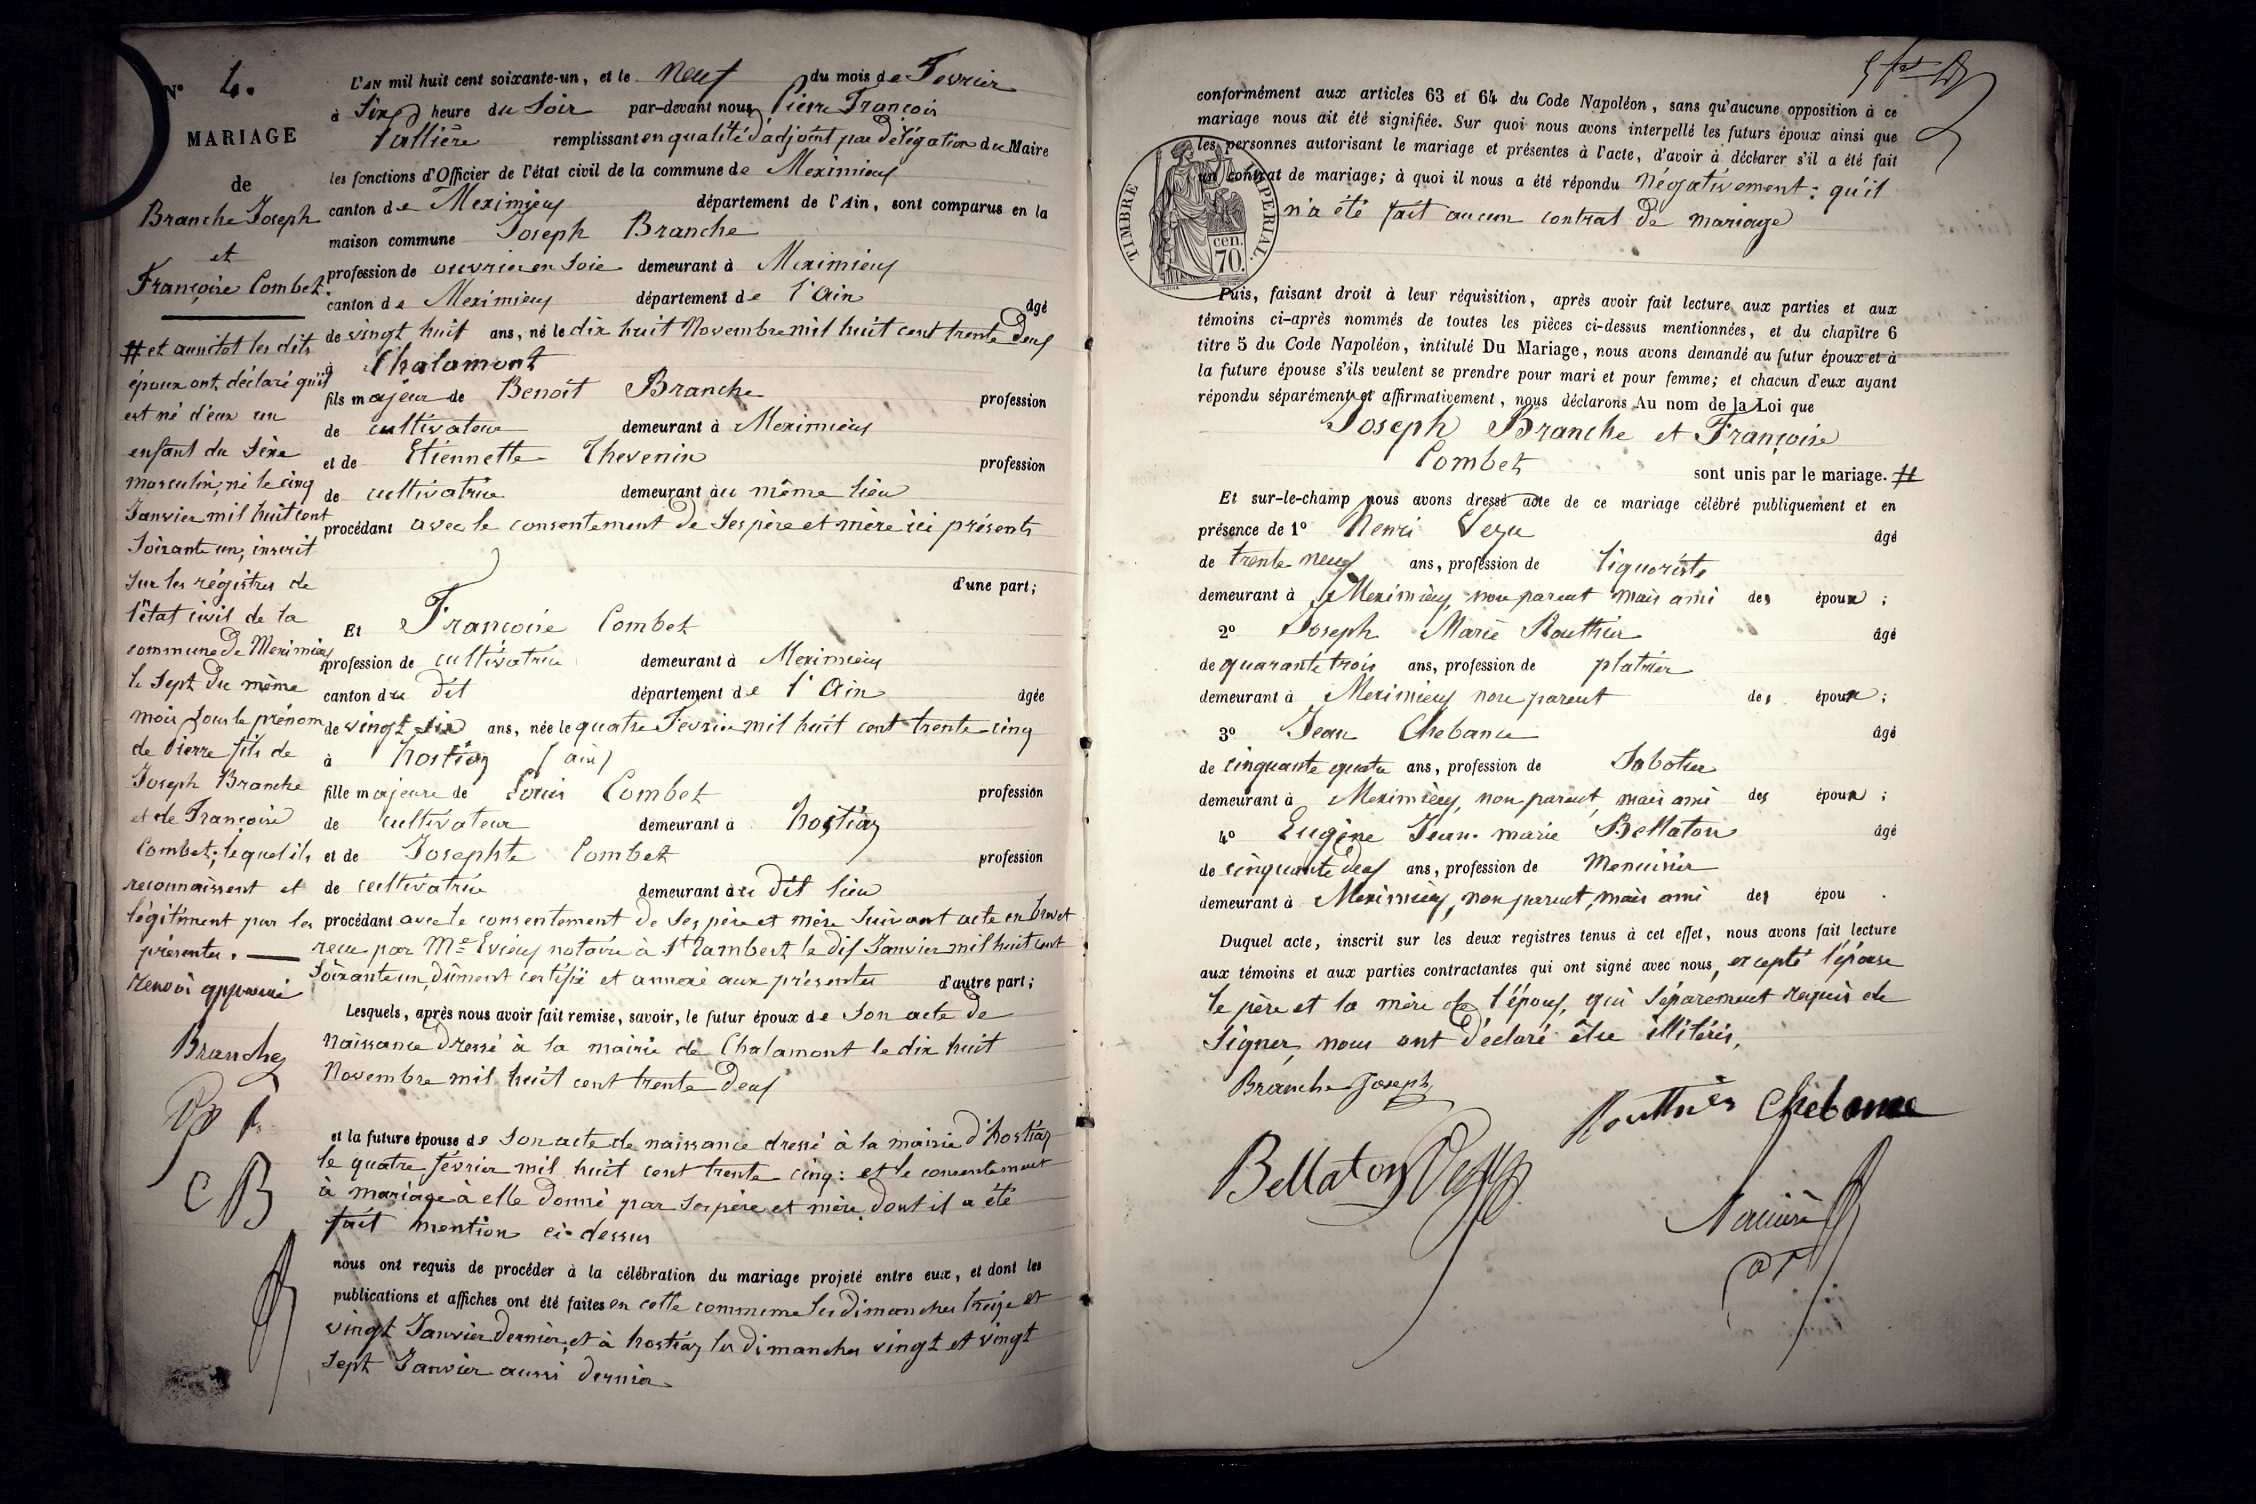 N° 4.
MARIAGE
de
Branche Joseph
et
Françoise Combet.
# et aussitot les dits
époux ont déclaré qu'il
est né d'eux un
enfant du sèxe
masculin, né le cinq
Janvier mil huit cent
soixante un, inscrit
sur les régistres de
l'état civil de la
commune de Meximieux
le sept du même
mois sous le prénom
de Pierre fils de
Joseph Branche
et de Françoise
Combet, lequel ils
reconnaissent et
légitiment par les
présentes. —
Renvoi approuvé
Branche
C B
L'AN mil huit cent soixante-un, et le neuf du mois de Fevrier
à Six heure du Soir par-devant nous Pierre François
Vallière remplissant en qualité d'adjoint par délégation du Maire
les fonctions d'Officier de l'état civil de la commune de Meximieux
canton de Meximieux département de l'Ain, sont comparus en la
maison commune Joseph Branche
profession de ouvrier en Soie demeurant à Meximieux
canton de Meximieux département de l'Ain âgé
de vingt huit ans, né le dix huit Novembre mil huit cent trente deux
à Chalamont
fils majeur de Benoît Branche profession
de cultivateur demeurant à Meximieux
et de Etiennette Thevenin profession
de cultivatrice demeurant au même lieu
procédant avec le consentement de Ses père et mère ici présents
d'une part;
Et Françoise Combet
profession de cultivatrice demeurant à Meximieux
canton du dit département de l'Ain âgée
de vingt six ans, née le quatre Fevrier mil huit cent trente cinq
à hostiaz (ain)
fille majeure de Louis Combet profession
de cultivateur demeurant à hostiaz
et de Josephte Combet profession
de cultivatrice demeurant au dit lieu
procédant avec le consentement de Ses père et mère suivant acte en brevet
reçu par Me Evieux notaire à St Rambert le dix Janvier mil huit cent
Soixante un, dûment certifié et annexé aux présentes d'autre part;
Lesquels, après nous avoir fait remise, savoir, le futur époux de Son acte de
Naissance dressé à la mairie de Chalamont le dix huit
Novembre mil huit cent trente deux
et la future épouse de Son acte de naissance dressé à la mairie d'hostiaz
le quatre février mil huit cent trente cinq: et le consentement
à mariage à elle donné par ses père et mère, dont il a été
fait mention ci-dessus
nous ont requis de procéder à la célébration du mariage projeté entre eux, et dont les
publications et affiches ont été faites en cette commune les dimanches treize et
vingt Janvier dernier, et à hostiaz les dimanches vingt et vingt
sept Janvier aussi dernier
conformément aux articles 63 et 64 du Code Napoléon, sans qu'aucune opposition à ce
mariage nous ait été signifiée. Sur quoi nous avons interpellé les futurs époux ainsi que
les personnes autorisant le mariage et présentes à l'acte, d'avoir à déclarer s'il a été fait
un contrat de mariage; à quoi il nous a été répondu négativement: qu'il
n'a été fait aucun contrat de mariage
TIMBRE IMPÉRIAL.
cen.
70.
Puis, faisant droit à leur réquisition, après avoir fait lecture aux parties et aux
témoins ci-après nommés de toutes les pièces ci-dessus mentionnées, et du chapitre 6
titre 5 du Code Napoléon, intitulé Du Mariage, nous avons demandé au futur époux et à
la future épouse s'ils veulent se prendre pour mari et pour femme; et chacun d'eux ayant
répondu séparément et affirmativement, nous déclarons Au nom de la Loi que
Joseph Branche et Françoise
Combet sont unis par le mariage. #
Et sur-le-champ nous avons dressé acte de ce mariage célébré publiquement et en
présence de 1° Henri Vezu âgé
de trente neuf ans, profession de liquoriste
demeurant à Meximieux, non parent mais ami des époux;
2° Joseph Marie Routhier âgé
de quarante trois ans, profession de platrier
demeurant à Meximieux non parent des époux;
3° Jean Chebance âgé
de cinquante quatre ans, profession de Sabotier
demeurant à Meximieux, non parent, mais ami des époux;
4° Eugène Jean-marie Bellaton âgé
de cinquante deux ans, profession de Menuisier
demeurant à Meximieux, non parent, mais ami des épou .
Duquel acte, inscrit sur les deux registres tenus à cet effet, nous avons fait lecture
aux témoins et aux parties contractantes qui ont signé avec nous, excepté l'épouse
le père et la mère de l'époux, qui séparement requis de
signer, nous ont déclaré être illitérés,
Branche Joseph
Routhier Chebance
Bellaton